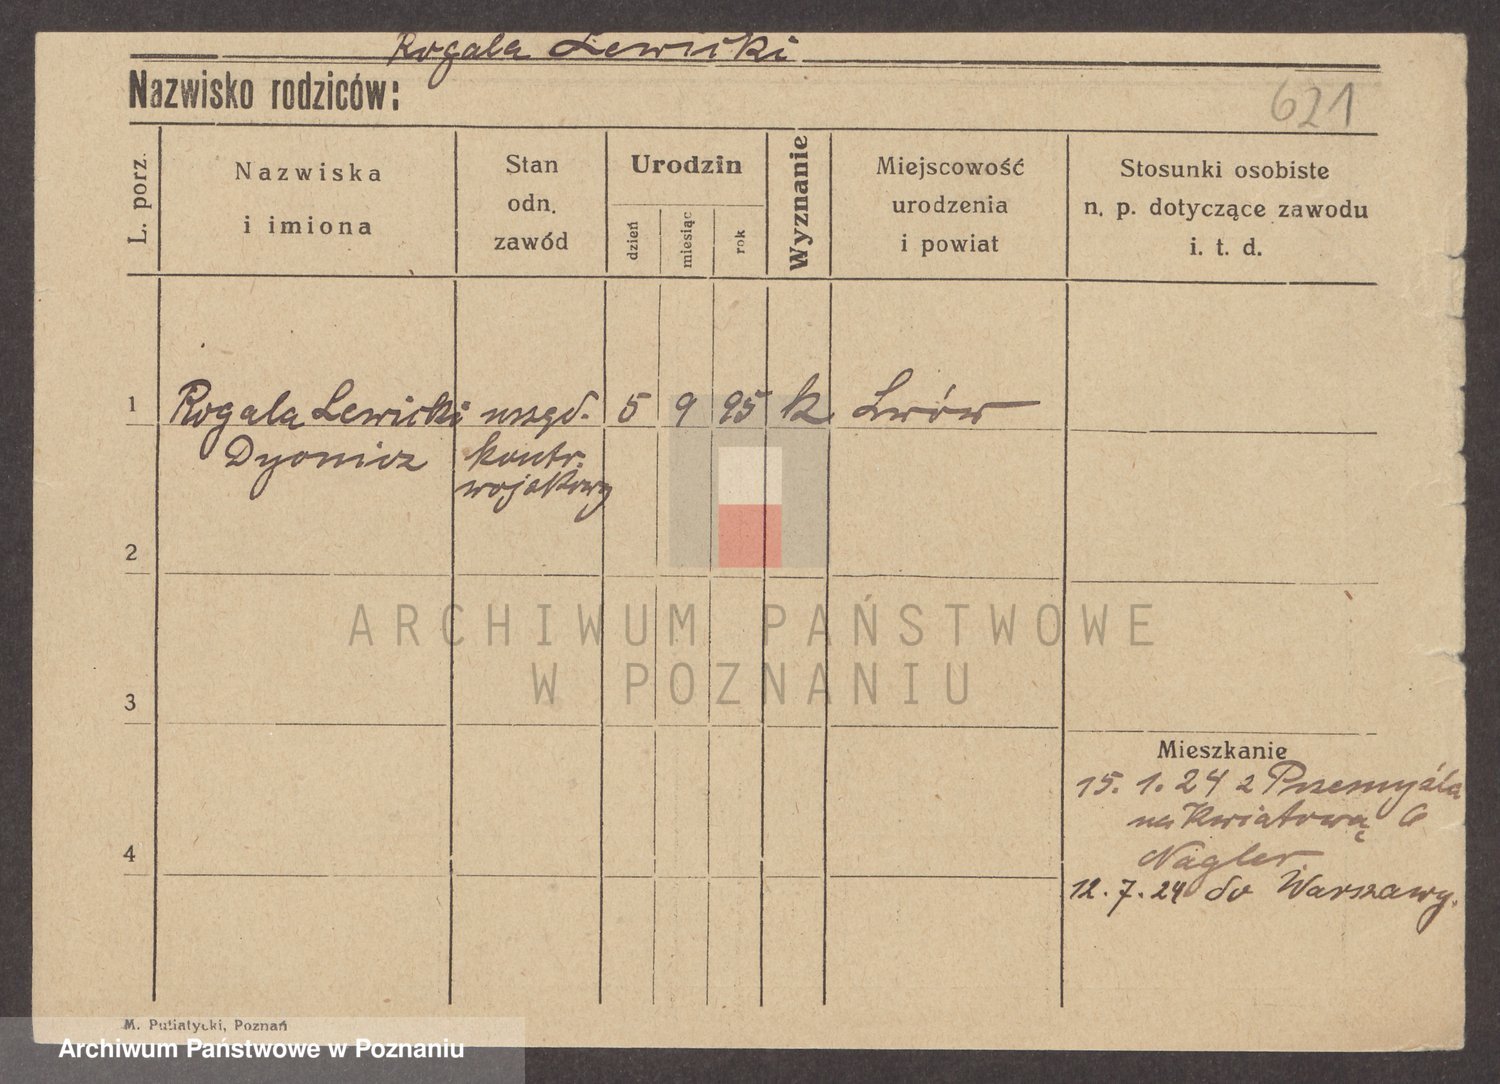 Rogala Lewicki
Nazwisko rodziców:
621
L. porz.
Nazwiska
i imiona
Stan
odn.
zawód
Urodzin
dzień
miesiąc
rok
Wyznanie
Miejscowość
urodzenia
i powiat
Stosunki osobiste
n. p. dotyczące zawodu
i. t. d.
1 Rogala Lewicki urzęd. 5 9 95 k. Lwów
Dyonizz kontr.
wojskowy
2
ARCHIWUM PAŃSTWOWE
W POZNANIU
3
Mieszkanie
15. 1. 24 z Przemyśla
na Kwiatową 6
Nagler.
4
12. 7. 24 do Warszawy.
M. Putiatycki, Poznań
Archiwum Państwowe w Poznaniu